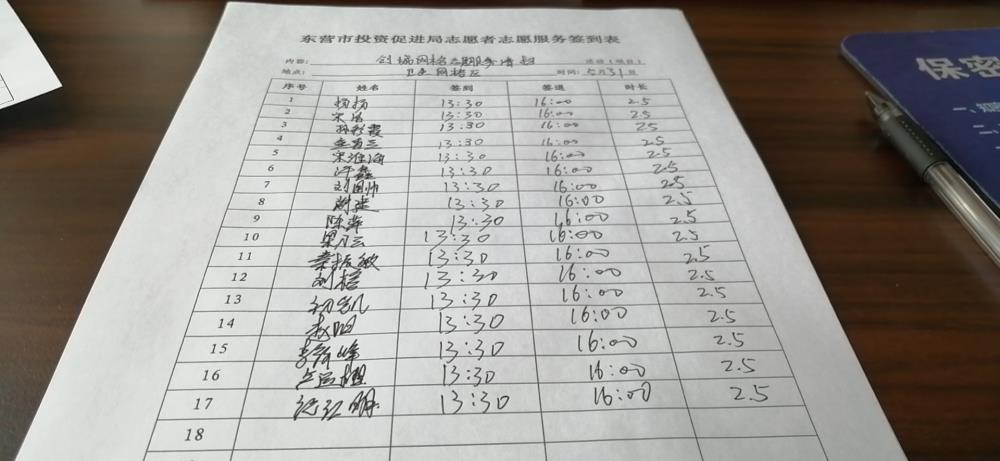 东营市投资促进局志愿者志愿服务签到表
内容: 创城网格志愿服务清扫 活动(项目)
地点: 卫生网格区 时间: 5月31日
序号 姓名 签到 签退 时长
1 杨扬 13:30 16:00 2.5
2 13:30 16:00 2.5
3 孙彩霞 13:30 16:00 2.5
4 13:30 16:00 2.5
5 宋淮海 13:30 16:00 2.5
6 许鑫 13:30 16:00 2.5
7 刘国帅 13:30 16:00 2.5
8 13:30 16:00 2.5
9 陈萍 13:30 16:00 2.5
10 13:30 16:00 2.5
11 13:30 16:00 2.5
12 13:30 16:00 2.5
13 初凯 13:30 16:00 2.5
14 13:30 16:00 2.5
15 13:30 16:00 2.5
16 13:30 16:00 2.5
17 13:30 16:00 2.5
18
保密
一、知
二、